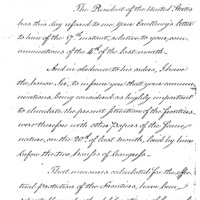 The President of the United States
has this day referred to me your Excellency's letter
to him of the 17th instant, relative to your com-
munications of the 4th of the last month.
And in obedience to his orders, I have
the honor Sir, to inform you that your commu-
nications, being considered as highly important
to elucidate the present situation of the frontiers,
was therefore with other papers of the same
nature, on the 20th of last month, laid by him
before the two houses of Congress.
That measures calculated for the effec-
tual protection of the frontiers, have been